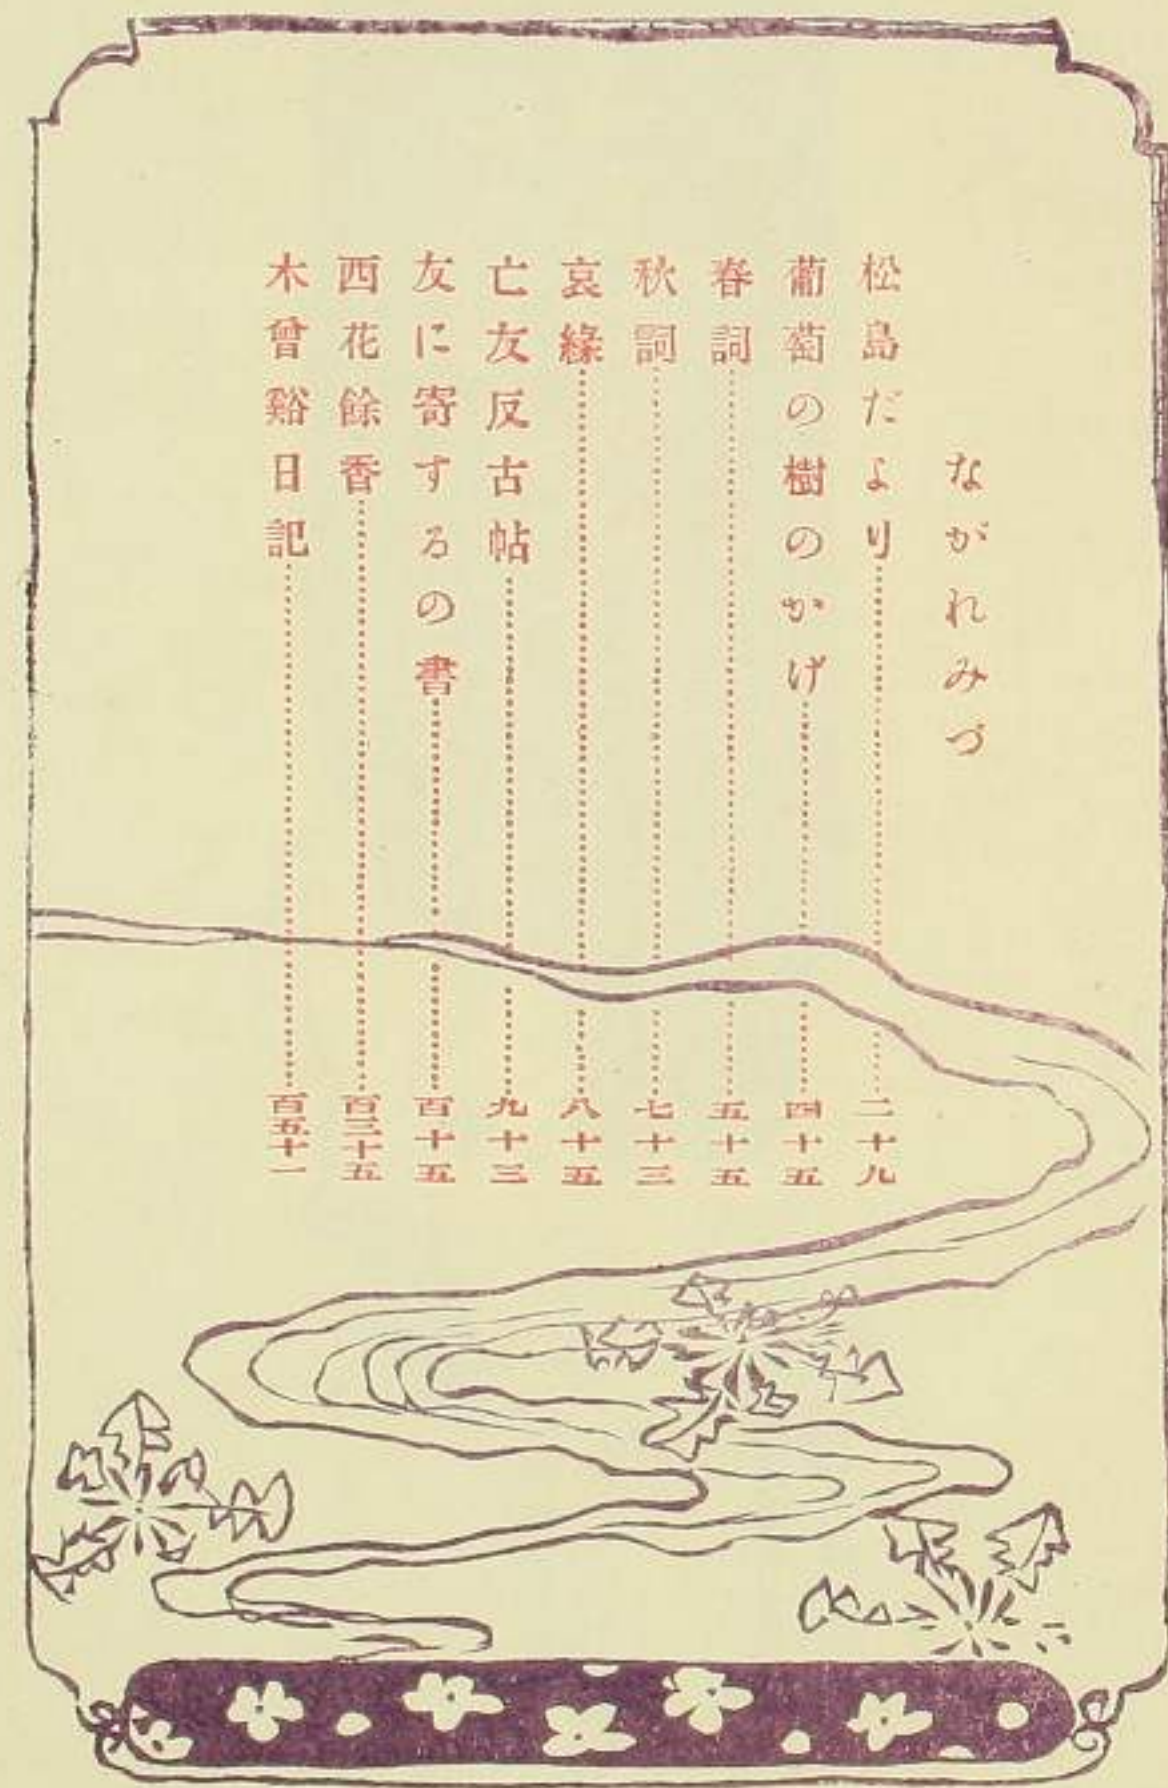 ながれみづ
松島だより……二十九
葡萄の樹のかげ……四十五
春詞……五十五
秋詞……七十三
哀緣……八十五
亡友反古帖……九十三
友に寄するの書……百十五
西花餘香……百三十五
木曾谿日記……百五十一